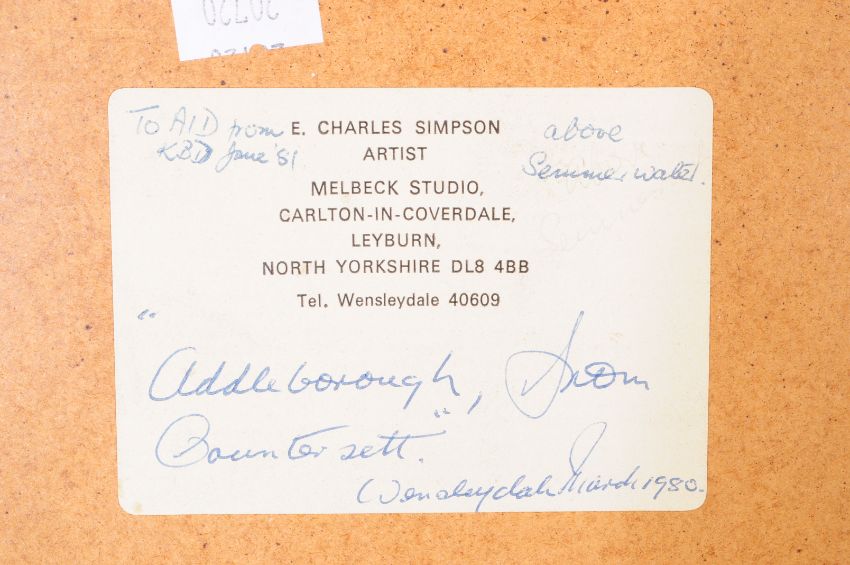 20720
To AID from
KBD June '81
E. CHARLES SIMPSON
ARTIST
MELBECK STUDIO,
CARLTON-IN-COVERDALE,
LEYBURN,
NORTH YORKSHIRE DL8 4BB
Tel. Wensleydale 40609
above
Semmerwater.
"Addleborough, from
Countersett."
Wensleydale March 1980.